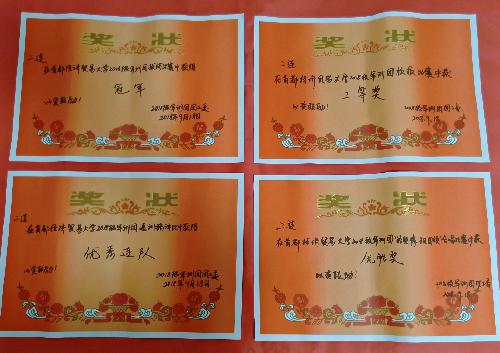 奖 状
二连
在首都经济贸易大学2018级军训团拔河比赛中获得
冠军
以资鼓励!
2018级军训团团委
2018年9月18日
奖 状
二连
在首都经济贸易大学2018级军训团板报比赛中获
二等奖
以资鼓励!
2018级军训团团委
2018.9.18
奖 状
二连
在首都经济贸易大学2018级军训团
训练评比中获得
优秀连队
以资鼓励!
2018级军训团团委
2018年9月18日
奖 状
二连
在首都经济贸易大学2018级军训团
比赛中获
优胜奖
以资鼓励!
2018级军训团团委
2018.9.18